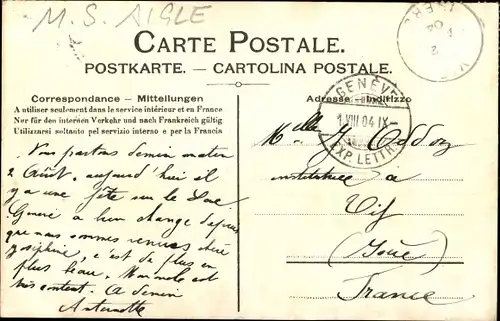 M. S. AIGLE
CARTE POSTALE.
POSTKARTE. — CARTOLINA POSTALE.
Correspondance — Mitteilungen
A utiliser seulement dans le service intérieur et en France
Nur für den internen Verkehr und nach Frankreich gültig
Utilizzarsi soltanto pel servizio interno e per la Francia
Adresse — Indirizzo
GENÈVE
1.VIII 04.IX—
EXP. LETTR.
04
Nous partons demain matin
2 Août, aujourd'hui il
y a une fête sur le Lac
Genève a bien changé depuis
que nous sommes venues chez
Joséphine, c'est de plus en
plus beau.
très content. A demain
Antoinette
Melle J. Oddoz
institutrice à
Vif
(Isère)
France